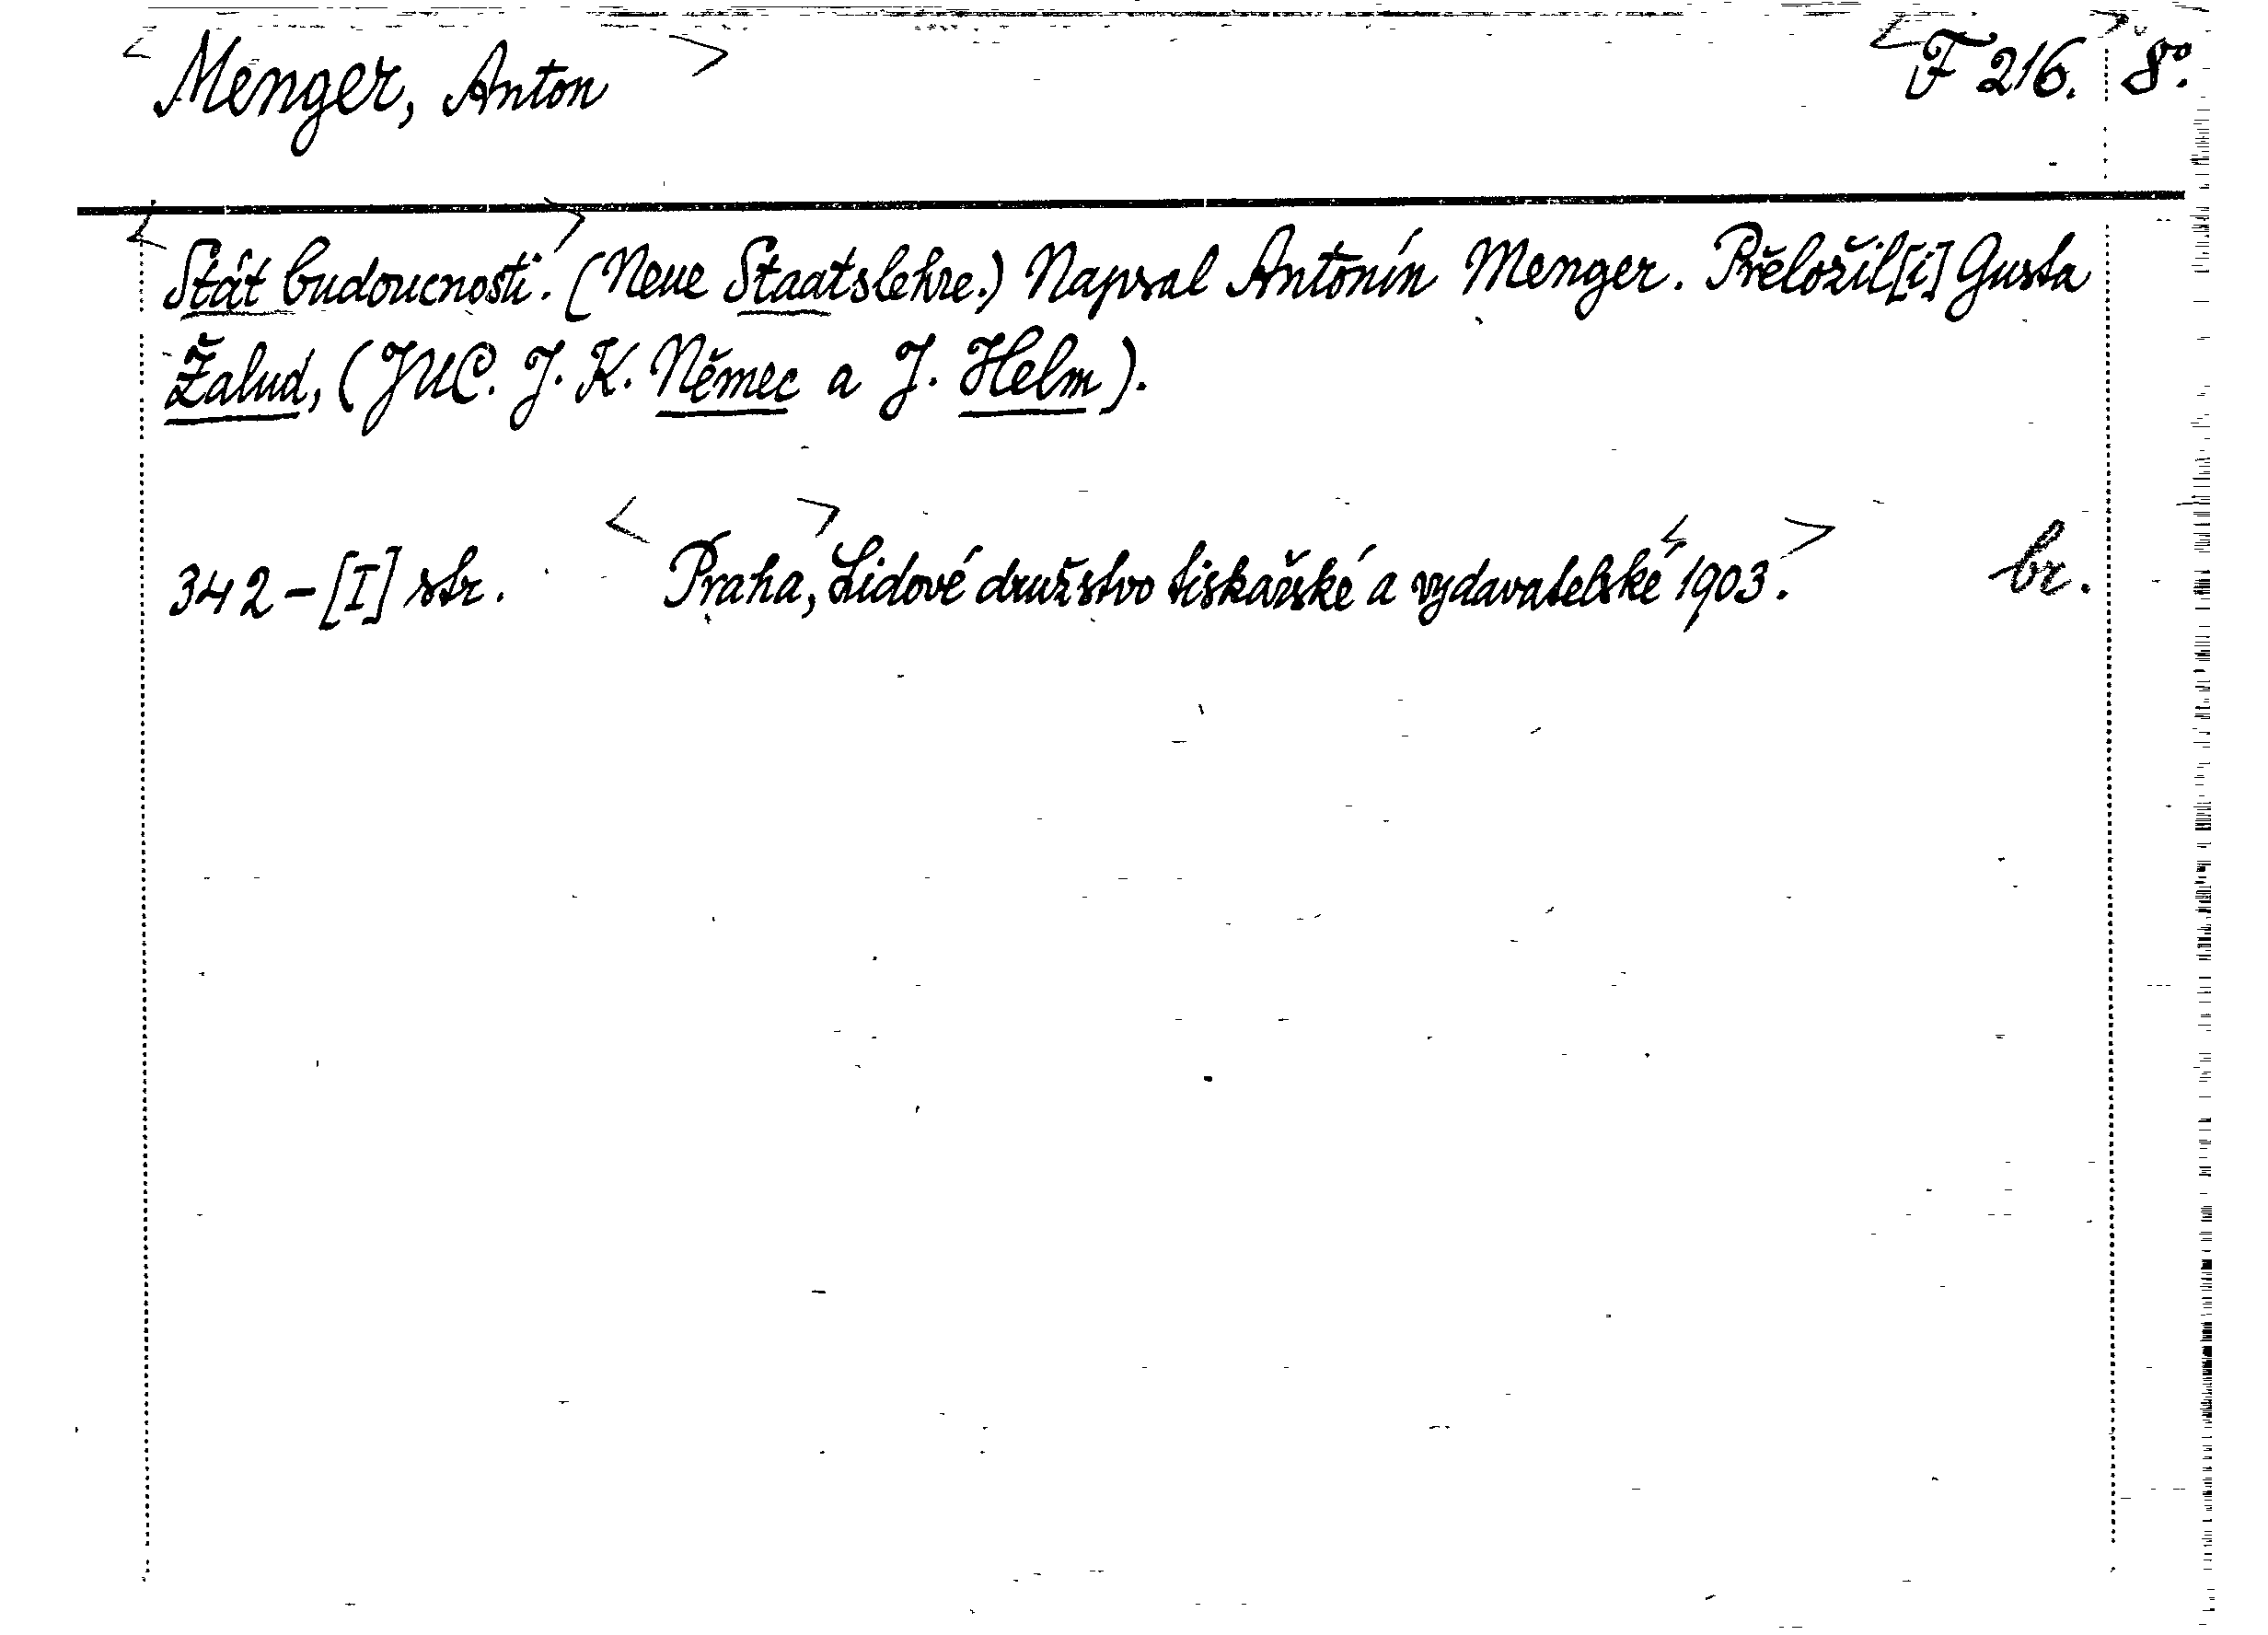 Menger, Anton F 216. 8°.
Stát budoucnosti. (Neue Staatslehre.) Napsal Antonín Menger. Přeložil[i] Gusta
Žalud, (JUC. J. K. Němec a J. Helm).
342-[I] str. Praha, Lidové družstvo tiskařské a vydavatelské 1903. br.